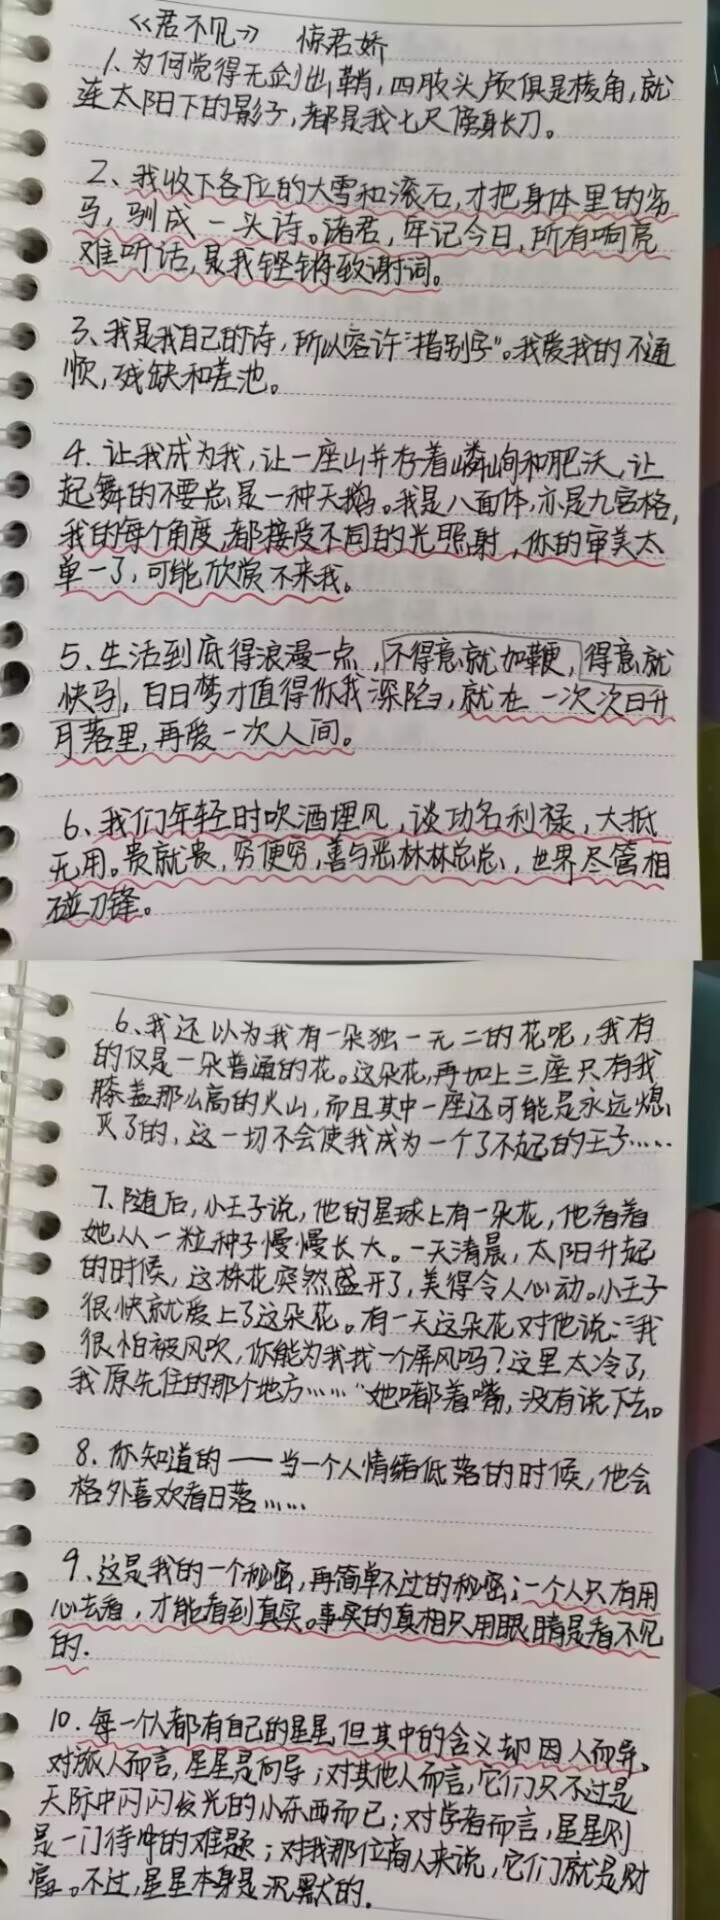 《君不见》 惊君娇
1.为何觉得无剑出鞘,四肢头颅俱是棱角,就
连太阳下的影子,都是我七尺傍身长刀。
2、我收下各位的大雪和滚石,才把身体里的劣
马,驯成一头诗。诸君,牢记今日,所有响亮
难听话,是我铿锵致谢词。
3、我是我自己的诗,所以容许“措别字”。我爱我的不通
顺,残缺和差池。
4.让我成为我,让一座山并存着嶙峋和肥沃,让
起舞的不要总是一种天鹅。我是八面体,亦是九宫格,
我的每个角度,都接受不同的光照射,你的审美太
单一了,可能欣赏不来我。
5、生活到底得浪漫一点,不得意就加鞭,得意就
快马,白日梦才值得你我深陷,就在一次次日升
月落里,再爱一次人间。
6、我们年轻时吹酒埋风,谈功名利禄,大抵
无用。贵就贵,穷便穷,善与恶林林总总,世界尽管相
碰刀锋。
6、我还以为我有一朵独一无二的花呢,我有
的仅是一朵普通的花。这朵花,再加上三座只有我
膝盖那么高的火山,而且其中一座还可能是永远熄
灭了的,这一切不会使我成为一个了不起的王子……
7、随后,小王子说,他的星球上有一朵花,他看着
她从一粒种子慢慢长大。一天清晨,太阳升起
的时候,这株花突然盛开了,美得令人心动。小王子
很快就爱上了这朵花。有一天这朵花对他说:“我
很怕被风吹,你能为我找一个屏风吗?这里太冷了,
我原先住的那个地方……”她嘟着嘴,没有说下去。
8.你知道的——当一个人情绪低落的时候,他会
格外喜欢看日落……
9、这是我的一个秘密,再简单不过的秘密;一个人只有用
心去看,才能看到真实。事实的真相只用眼睛是看不见
的.
10.每一个人都有自己的星星,但其中的含义却因人而异。
对旅人而言,星星是向导;对其他人而言,它们只不过是
天际中闪闪发光的小东西而已;对学者而言,星星则
是一门待冲的难题;对我那位商人来说,它们就是财
富。不过,星星本身是沉默的.